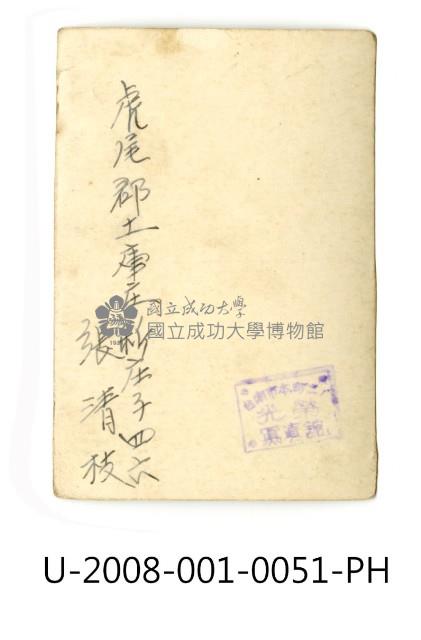 虎尾郡土庫庄新庄子四六
張清枝
國立成功大學
國立成功大學博物館
光榮
寫真館
U-2008-001-0051-PH